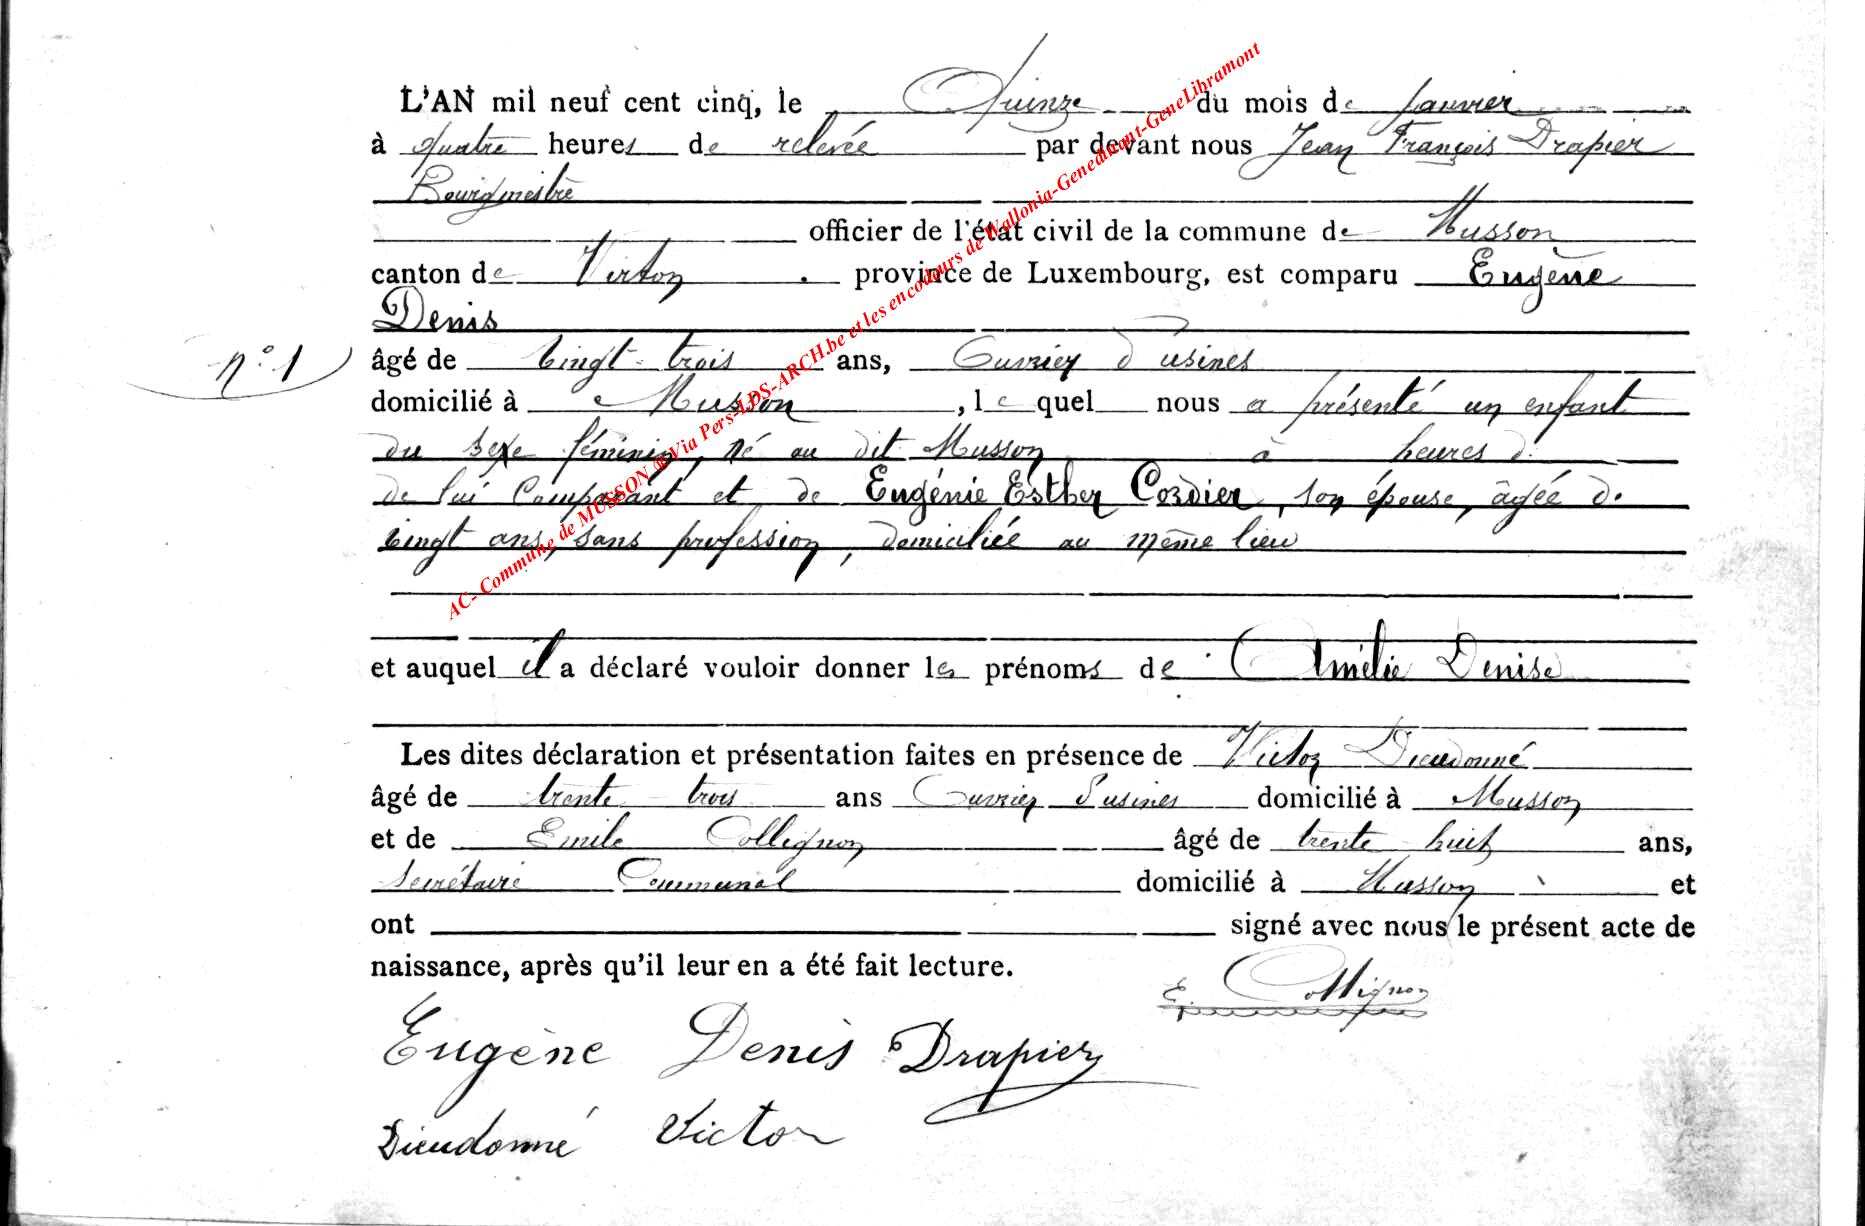 L'AN mil neuf cent cinq, le Quinze du mois de Janvier
à quatre heures de relevée par devant nous Jean François Drapier
Bourgmestre
officier de l'état civil de la commune de Musson
canton de Virton province de Luxembourg, est comparu Eugène
Denis
n° 1
âgé de vingt-trois ans, Ouvrier d'usines
domicilié à Musson, lequel nous a présenté un enfant
du sexe féminin, né au dit Musson à heures d.
de lui Comparant et de Eugénie Esther Cordier, son épouse, âgée de
vingt ans, sans profession, domiciliée au même lieu
et auquel il a déclaré vouloir donner les prénoms de Amélie Denise
Les dites déclaration et présentation faites en présence de Victor Dieudonné
âgé de trente trois ans Ouvrier d'usines domicilié à Musson
et de Emile Collignon âgé de trente huit ans,
Secrétaire Communal domicilié à Musson et
ont signé avec nous le présent acte de
naissance, après qu'il leur en a été fait lecture.
E. Collignon
Eugène Denis Drapier
Dieudonné Victor
AC- Commune de MUSSON ® Via Pers-LDS-ARCH.be et les encodeurs de Wallonia-Genedinant-GeneLibramont